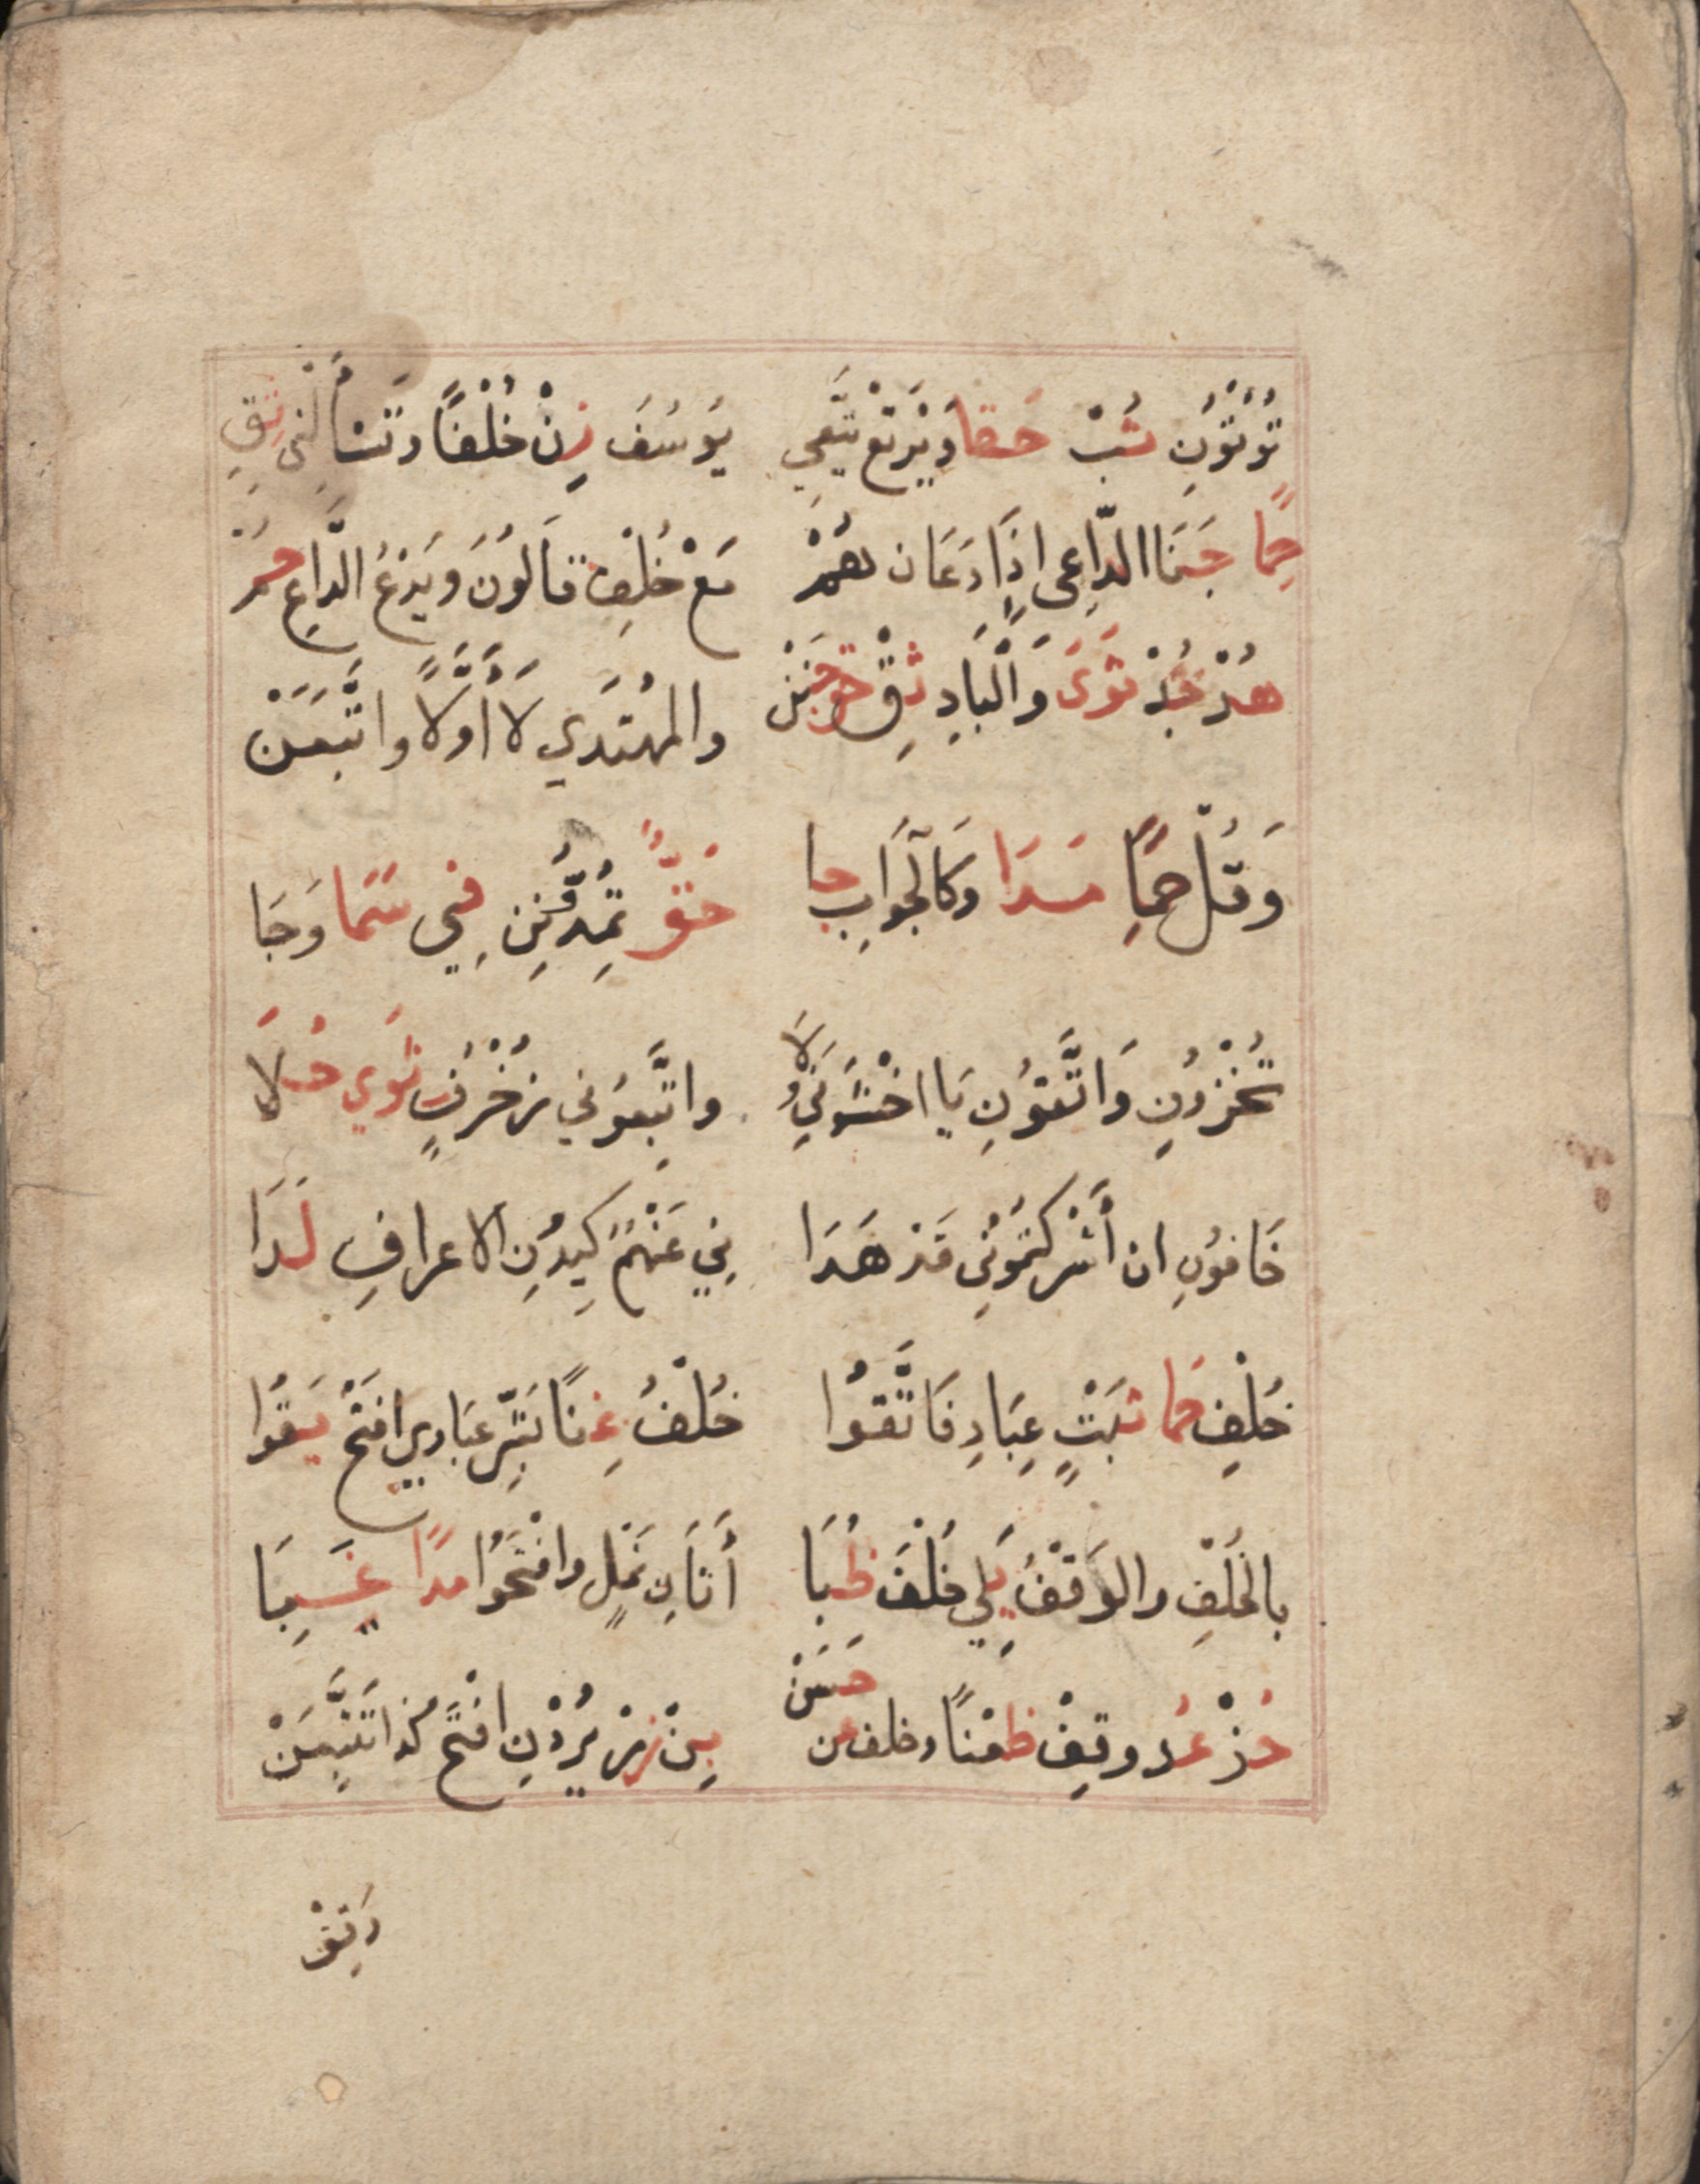 تُؤْتُوْنِ ثُبْ حَقًا وَيَرْتَعْ يَتَّقِي يُوسُفَ زِنْ خُلْفًا وَتَسْأَلْنِي ثِقِ
حِمًا جَنَا الدَّاعِي اِذَا دَعَانِ هُمْ مَعْ خُلْفِ قَالُونَ وَيَدْعُ الدَّاعِ حُمْ
هُدْ جُدْ ثَوَى وَالْبَادِ ثِقْ حَقٌّ جَنَنْ والمُهْتَدِي لَا أَوَّلًا واتَّبَعَنْ
وَقُلْ حِمًا مَدَا وَكَالْجَوَابِ جا حَقٌّ تُمِدُّونَنِ فِي سَمَا وَجَا
تُخْزُونِ وَاتَّقُونِ يَا اخْشَوْنِي وَلَا واتَّبِعُونِي زُخْرُفٍ ثَوَي حَلَا
خَافُونِ ان أَشْرَكْتُمُونِي قَدْ هَدَا نِي عَنْهُمُ كِيدُونِ الاعرافِ لَدَا
خُلْفِ حَمَا ثَبَتْ عِبَادِ فَاتَّقُوا خُلْفُ غِنًا بَشِّر عِبَادِي افْتَحْ يَقُوا
بالخُلْفِ والوَقْفُ يَلِي خُلْفَ ظُبَا أَتَانِ نَمْلٍ وافْتَحُوا مَدًا غَسِبَا
حُزْ عُد وقِفْ ظَعْنًا وخلف عن حَسَنْ بِنْ زُرْ يُرِدْنِ افْتَحْ كَذا تَتَّبِعَنْ
وَقِفْ